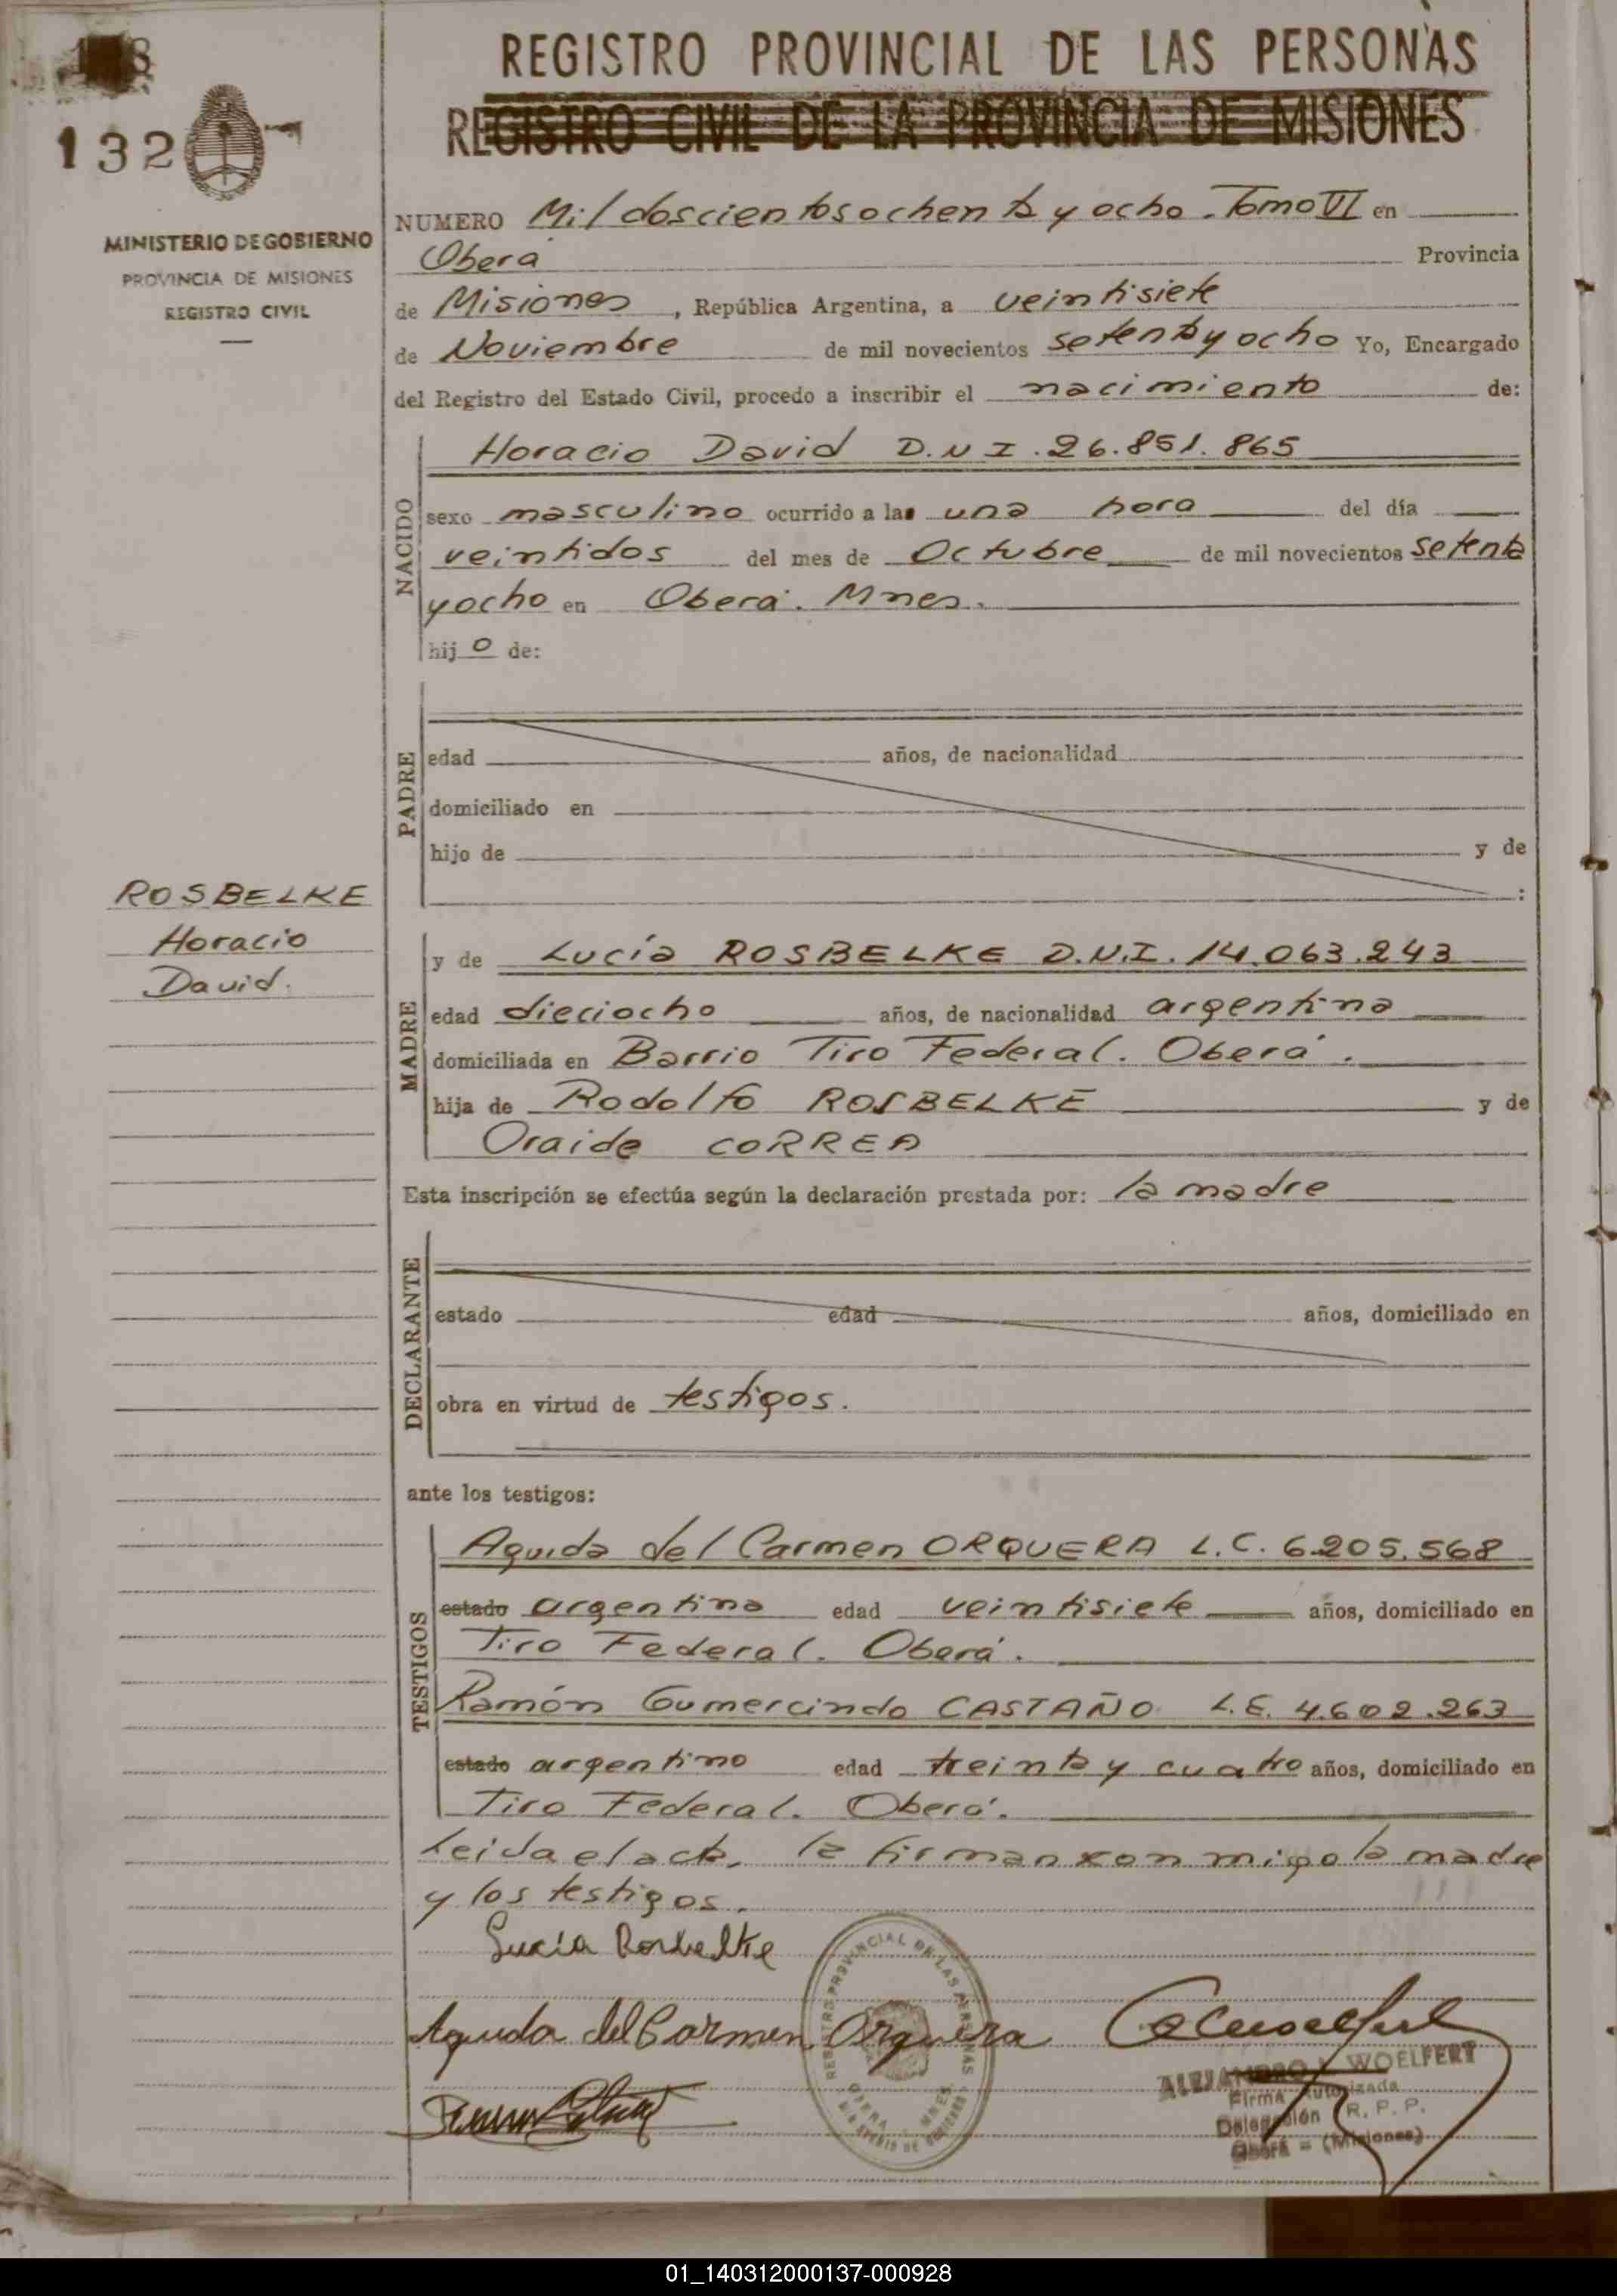 REGISTRO PROVINCIAL DE LAS PERSONAS
REGISTRO CIVIL DE LA PROVINCIA DE MISIONES
132
MINISTERIO DE GOBIERNO
PROVINCIA DE MISIONES
REGISTRO CIVIL
NUMERO Mil doscientos ochenta y ocho. Tomo VI en
Oberá Provincia
de Misiones, República Argentina, a veintisiete
de Noviembre de mil novecientos setenta y ocho Yo, Encargado
del Registro del Estado Civil, procedo a inscribir el nacimiento de:
NACIDO
Horacio David D.N.I. 26.851.865
sexo masculino ocurrido a las una hora del día
veintidos del mes de Octubre de mil novecientos setenta
y ocho en Oberá. Mnes.
hijo de:
PADRE
edad años, de nacionalidad
domiciliado en
hijo de y de
:
ROSBELKE
Horacio
David.
MADRE
y de Lucía ROSBELKE D.N.I. 14.063.243
edad dieciocho años, de nacionalidad argentina
domiciliada en Barrio Tiro Federal. Oberá.
hija de Rodolfo ROSBELKE y de
Oraide CORREA
Esta inscripción se efectúa según la declaración prestada por: la madre
DECLARANTE
estado edad años, domiciliado en
obra en virtud de testigos.
ante los testigos:
TESTIGOS
Aguida del Carmen ORQUERA L.C. 6.205.568
estado argentina edad veintisiete años, domiciliado en
Tiro Federal. Oberá.
Ramón Gumercindo CASTAÑO L.E. 4.602.263
estado argentino edad treinta y cuatro años, domiciliado en
Tiro Federal. Oberá.
Leida el acta, la firman conmigo la madre
y los testigos.
Lucía Rosbelke
Aguida del Carmen Orquera
REGISTRO PROVINCIAL DE LAS PERSONAS
OBERA MNES.
MINISTERIO DE GOBIERNO
ALEJANDRO WOELFERT
Firma Autorizada
Delegación R. P. P.
Oberá = (Misiones)
01_140312000137-000928